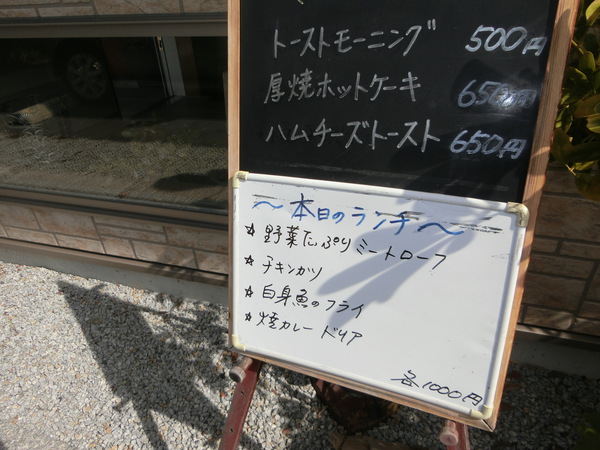 トーストモーニング 500円
厚焼ホットケーキ 650円
ハムチーズトースト 650円
～本日のランチ～
☆ 野菜たっぷり ミートローフ
☆ チキンカツ
☆ 白身魚のフライ
☆ 焼カレードリア
各1000円